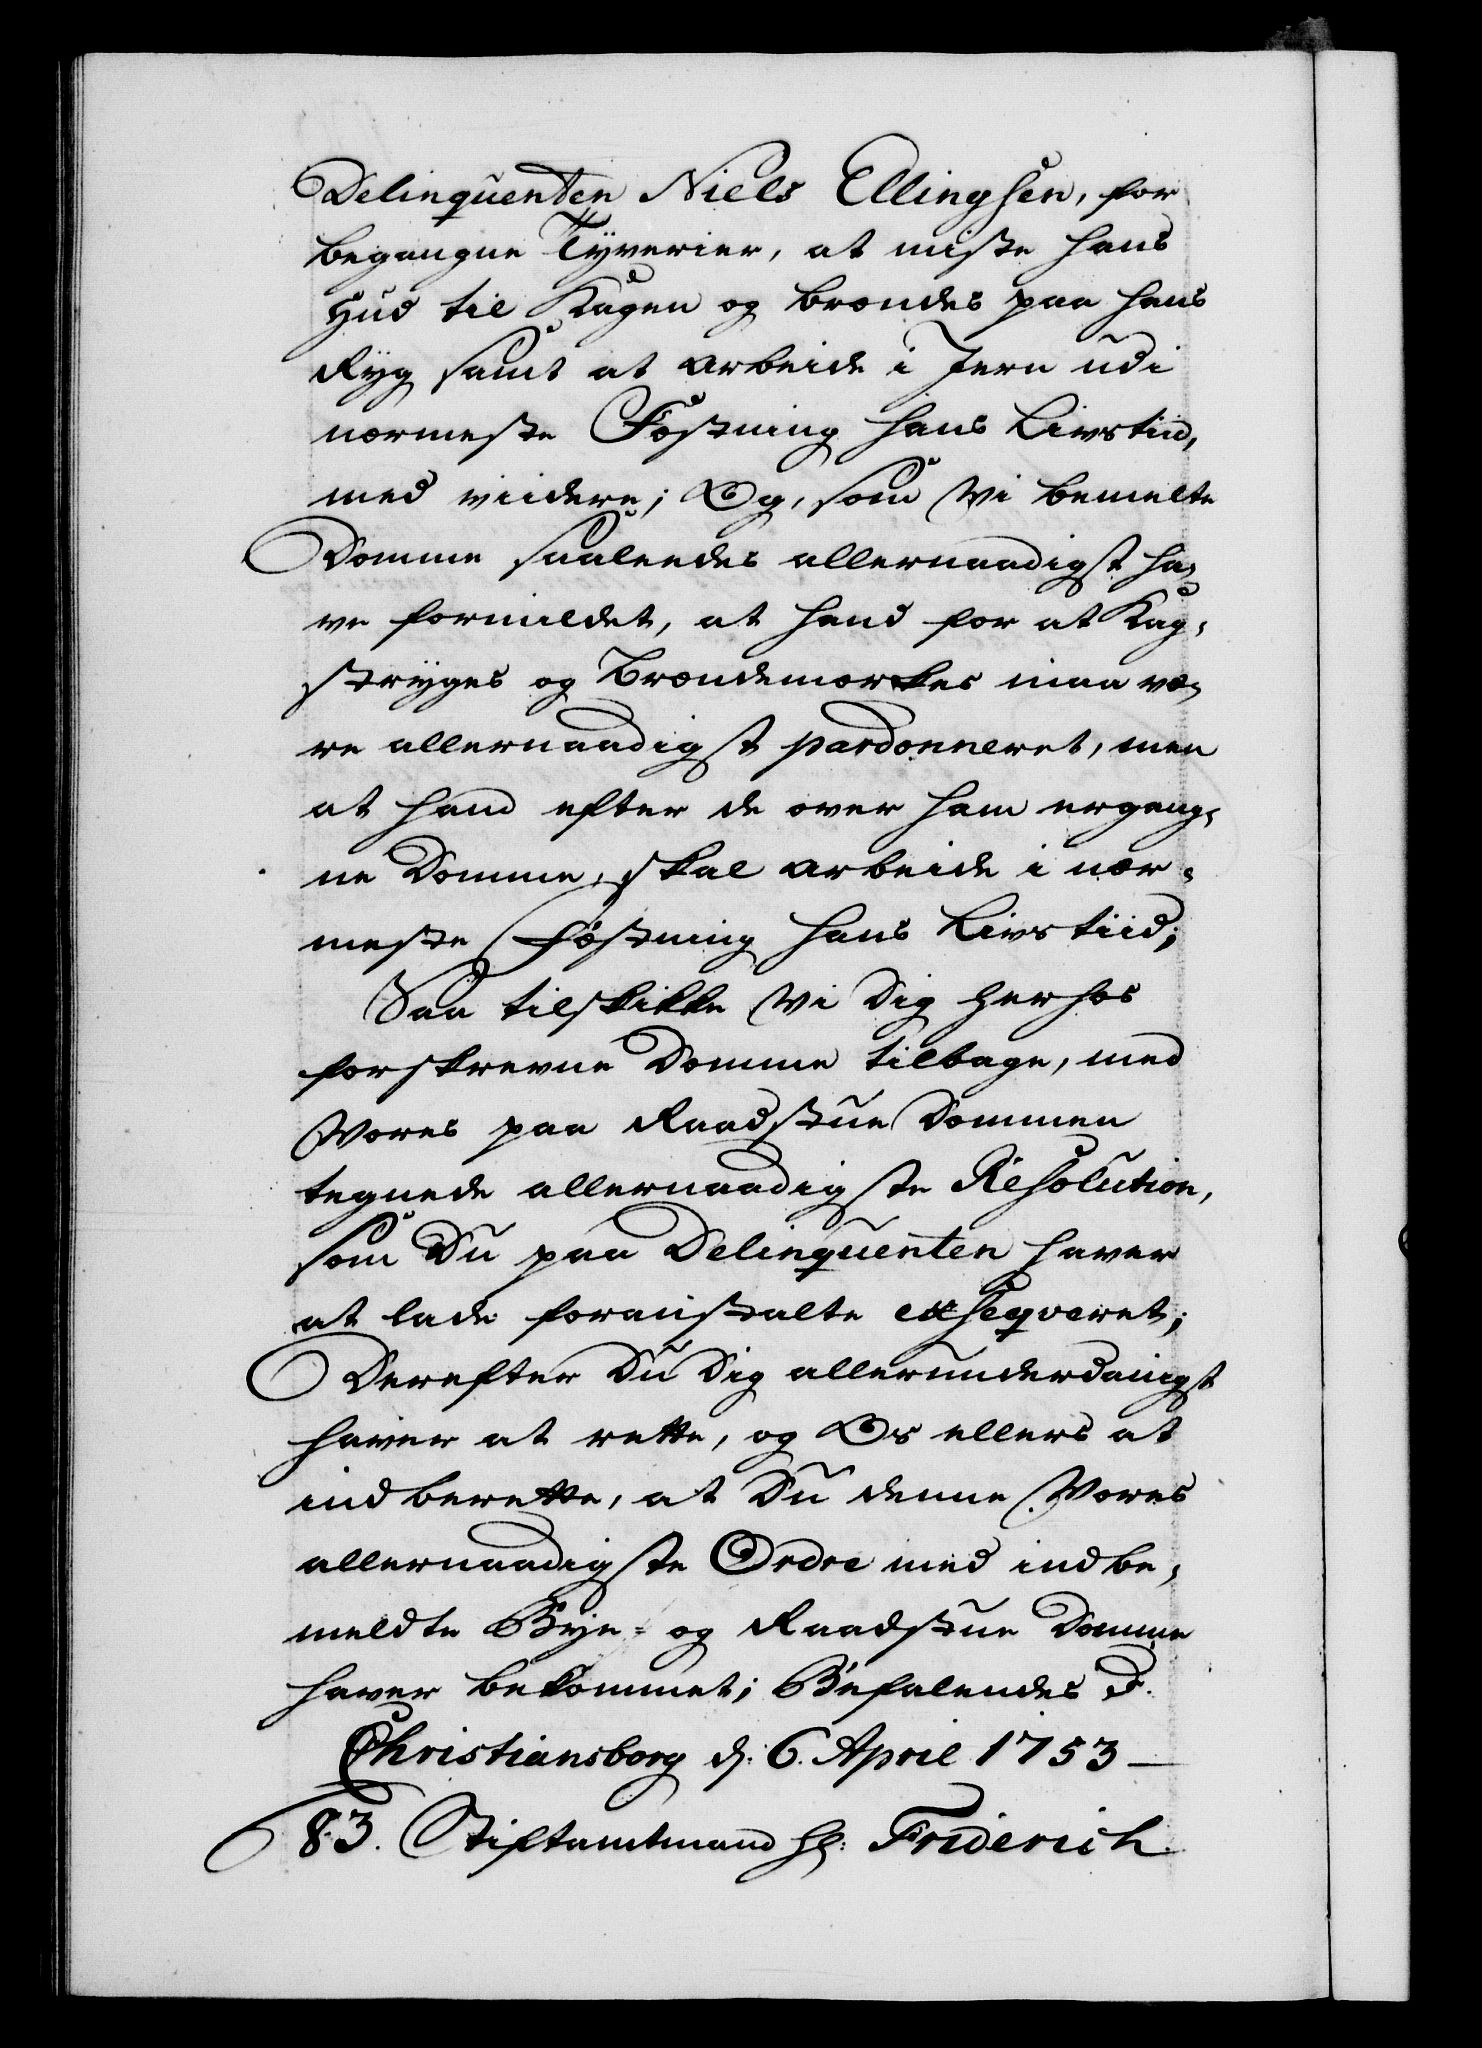 Delinquenten Niels Ellingsen, for
begangne Tÿverier, at miste hans
Hud til Kagen og brændes paa hans
Rÿg samt at arbeide i Jern udi
nærmeste Fæstning hans Livstiid,
med viidere; Og, som Vi bemelte
Domme saaleedes allernaadigst ha-
ve formildet, at hand for at Kag-
strÿges og Brændemærkes maa væ-
re allernaadigst pardonneret, men
at hand efter de over ham ergang-
ne Domme, skal arbeide i nær-
meste Fæstning hans Livstiid;
Saa tilskikke Vi Dig herhos
forskrevne Domme tilbage, med
Vores paa Raadstue Dommen
tegnede allernaadigste Resolution,
som Du paa Delinquenten haver
at lade foranstalte exseqveret;
Derefter Du Dig allerunderdanigst
haver at rette, og Os ellers at
indberette, at Du denne Vores
allernaadigste Ordre med indbe-
meldte Bÿe- og Raadstue Domme
haver bekommet; Befalendes d.
Christiansborg d: 6. April 1753
83. Stiftamtmand Hr: Friderich